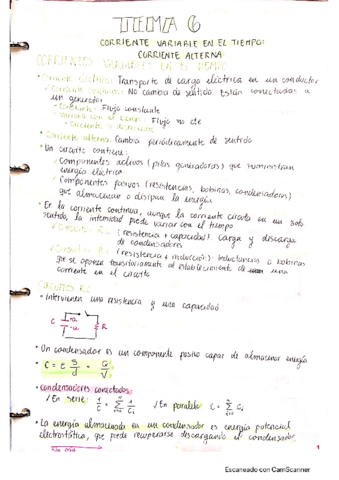 TEMA 6
CORRIENTE VARIABLE EN EL TIEMPO:
CORRIENTE ALTERNA
CORRIENTES VARIABLES EN EL TIEMPO
• Corriente eléctrica: Transporte de carga eléctrica en un conductor
✓ Corriente continua: No cambia de sentido. Están conectadas a
un generador
- Constante: Flujo constante
- Variable con el tiempo: Flujo no cte
- Creciente o decreciente
• Corriente alterna: Cambia periódicamente de sentido
• Un circuito contiene:
✓ Componentes activos (pilas, generadores) que suministran
energía eléctrica
✓ Componentes pasivos (resistencias, bobinas, condensadores)
que almacenan o disipan la energía
• En la corriente continua, aunque la corriente circula en un solo
sentido, la intensidad puede variar con el tiempo
✓ Circuitos R.C (resistencia + capacidad). Carga y descarga
de condensadores
✓ Circuitos R.L (resistencia + inducción): Inductancias o bobinas
que se oponen transitoriamente al establecimiento de una
corriente en el circuito
CIRCUITOS R.C
• Intervienen una resistencia y una capacidad
C +q -q R
• Un condensador es un componente pasivo capaz de almacenar energía
• C = ε S/d = Q/V
• Condensadores conectados:
✓ En serie: 1/C = Σ 1/Ci ✓ En paralelo: C = Σ Ci
• La energía almacenada en un condensador es energía potencial
electrostática, que puede recuperarse descargando el condensador
1
Escaneado con CamScanner